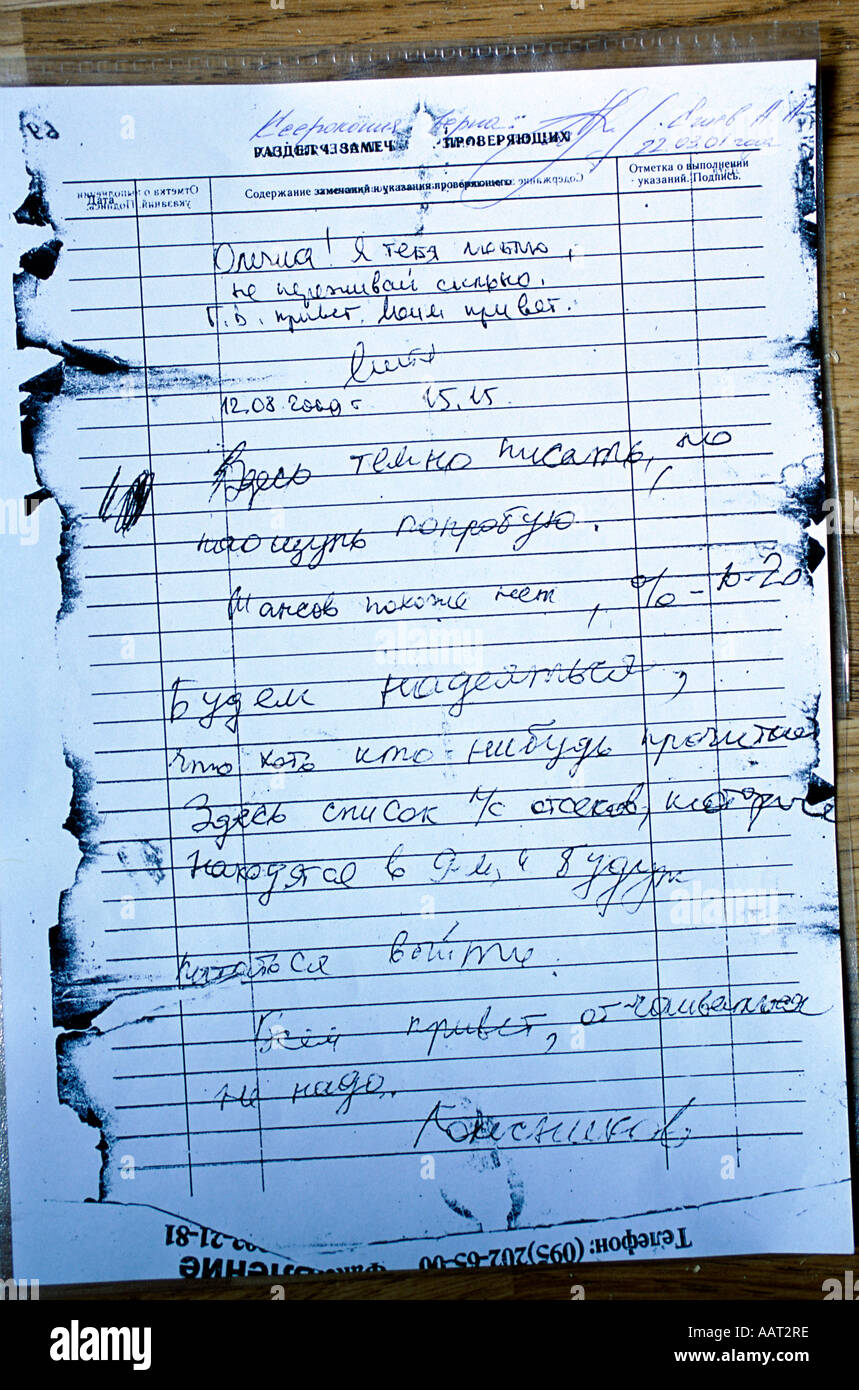 Ксерокопия верна:
22.03.01 года
РАЗДЕЛ ЗАМЕЧ ПРОВЕРЯЮЩИХ
Дата
Содержание замечаний и указания проверяющего
Отметка о выполнении
указаний. Подпись.
Отметка о выполнении
указаний. Подпись.
Олечка! Я тебя люблю,
не переживай сильно.
Г.В. привет. Моим привет.
Митя
12.08.2000 г 15.15.
Здесь темно писать, но
наощупь попробую.
Шансов похоже нет, % - 10-20
Будем надеяться,
что хоть кто-нибудь прочитает
Здесь список л/с отсеков, которые
находятся в 9-м, и будут
пытаться выйти.
Всем привет, отчаиваться
не надо.
Колесников
Телефон: (095)202-65-00
02-21-81
alamy
Image ID: AAT2RE
www.alamy.com